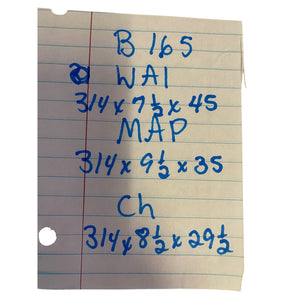 B 165
WAI
3/4 x 7 1/2 x 45
MAP
3/4 x 9 1/2 x 35
Ch
3/4 x 8 1/2 x 29 1/2